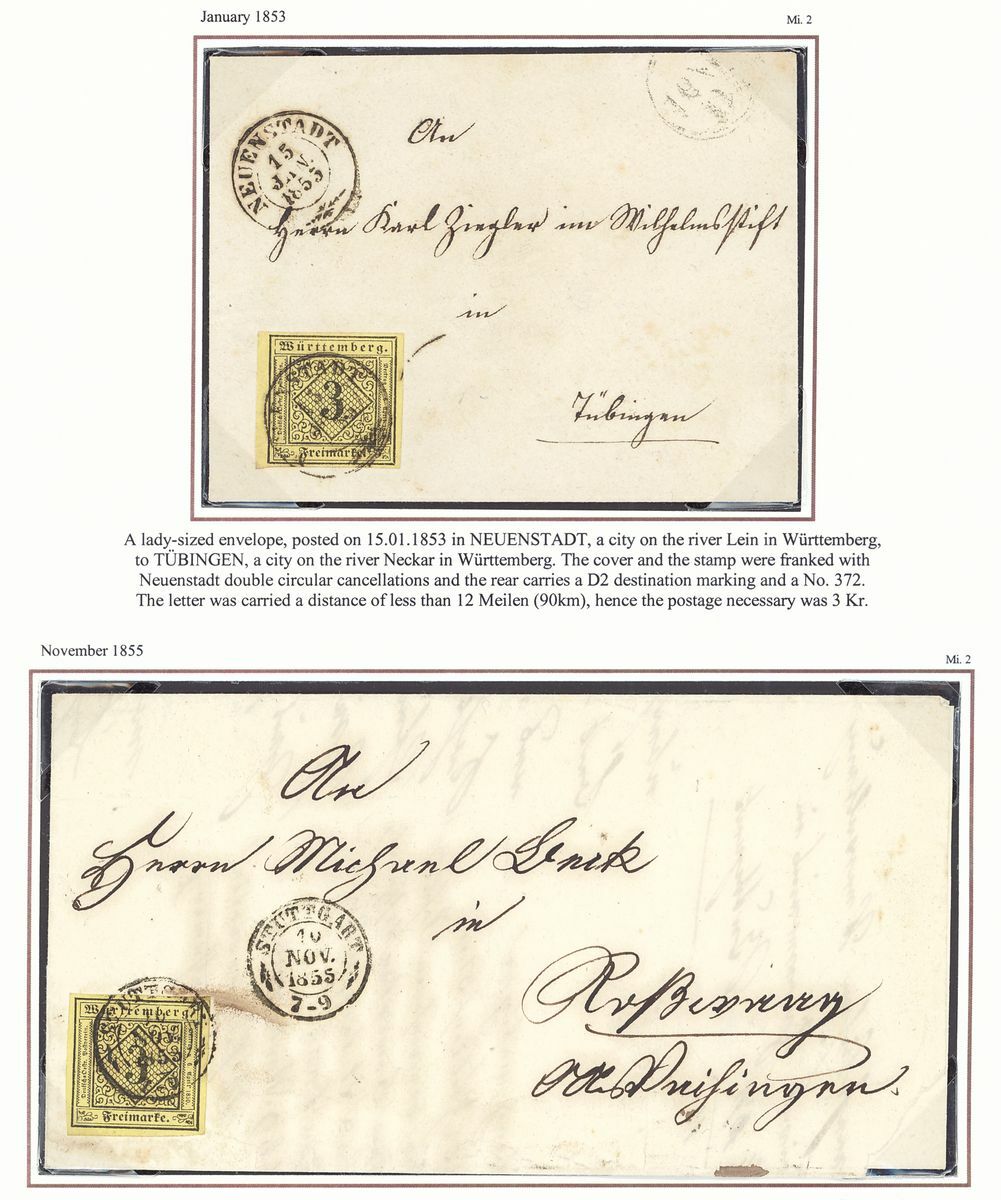 January 1853
Mi. 2
NEUENSTADT
15
JAN.
1853
An
Herrn Karl Ziegler im Wilhelmsstift
in
Tübingen
Württemberg.
3
Freimarke.
A lady-sized envelope, posted on 15.01.1853 in NEUENSTADT, a city on the river Lein in Württemberg,
to TÜBINGEN, a city on the river Neckar in Württemberg. The cover and the stamp were franked with
Neuenstadt double circular cancellations and the rear carries a D2 destination marking and a No. 372.
The letter was carried a distance of less than 12 Meilen (90km), hence the postage necessary was 3 Kr.
November 1855
Mi. 2
An
Herrn Michael
in
STUTTGART
10
NOV.
1855
7-9
Württemberg
3
Freimarke.
OA Vaihingen.